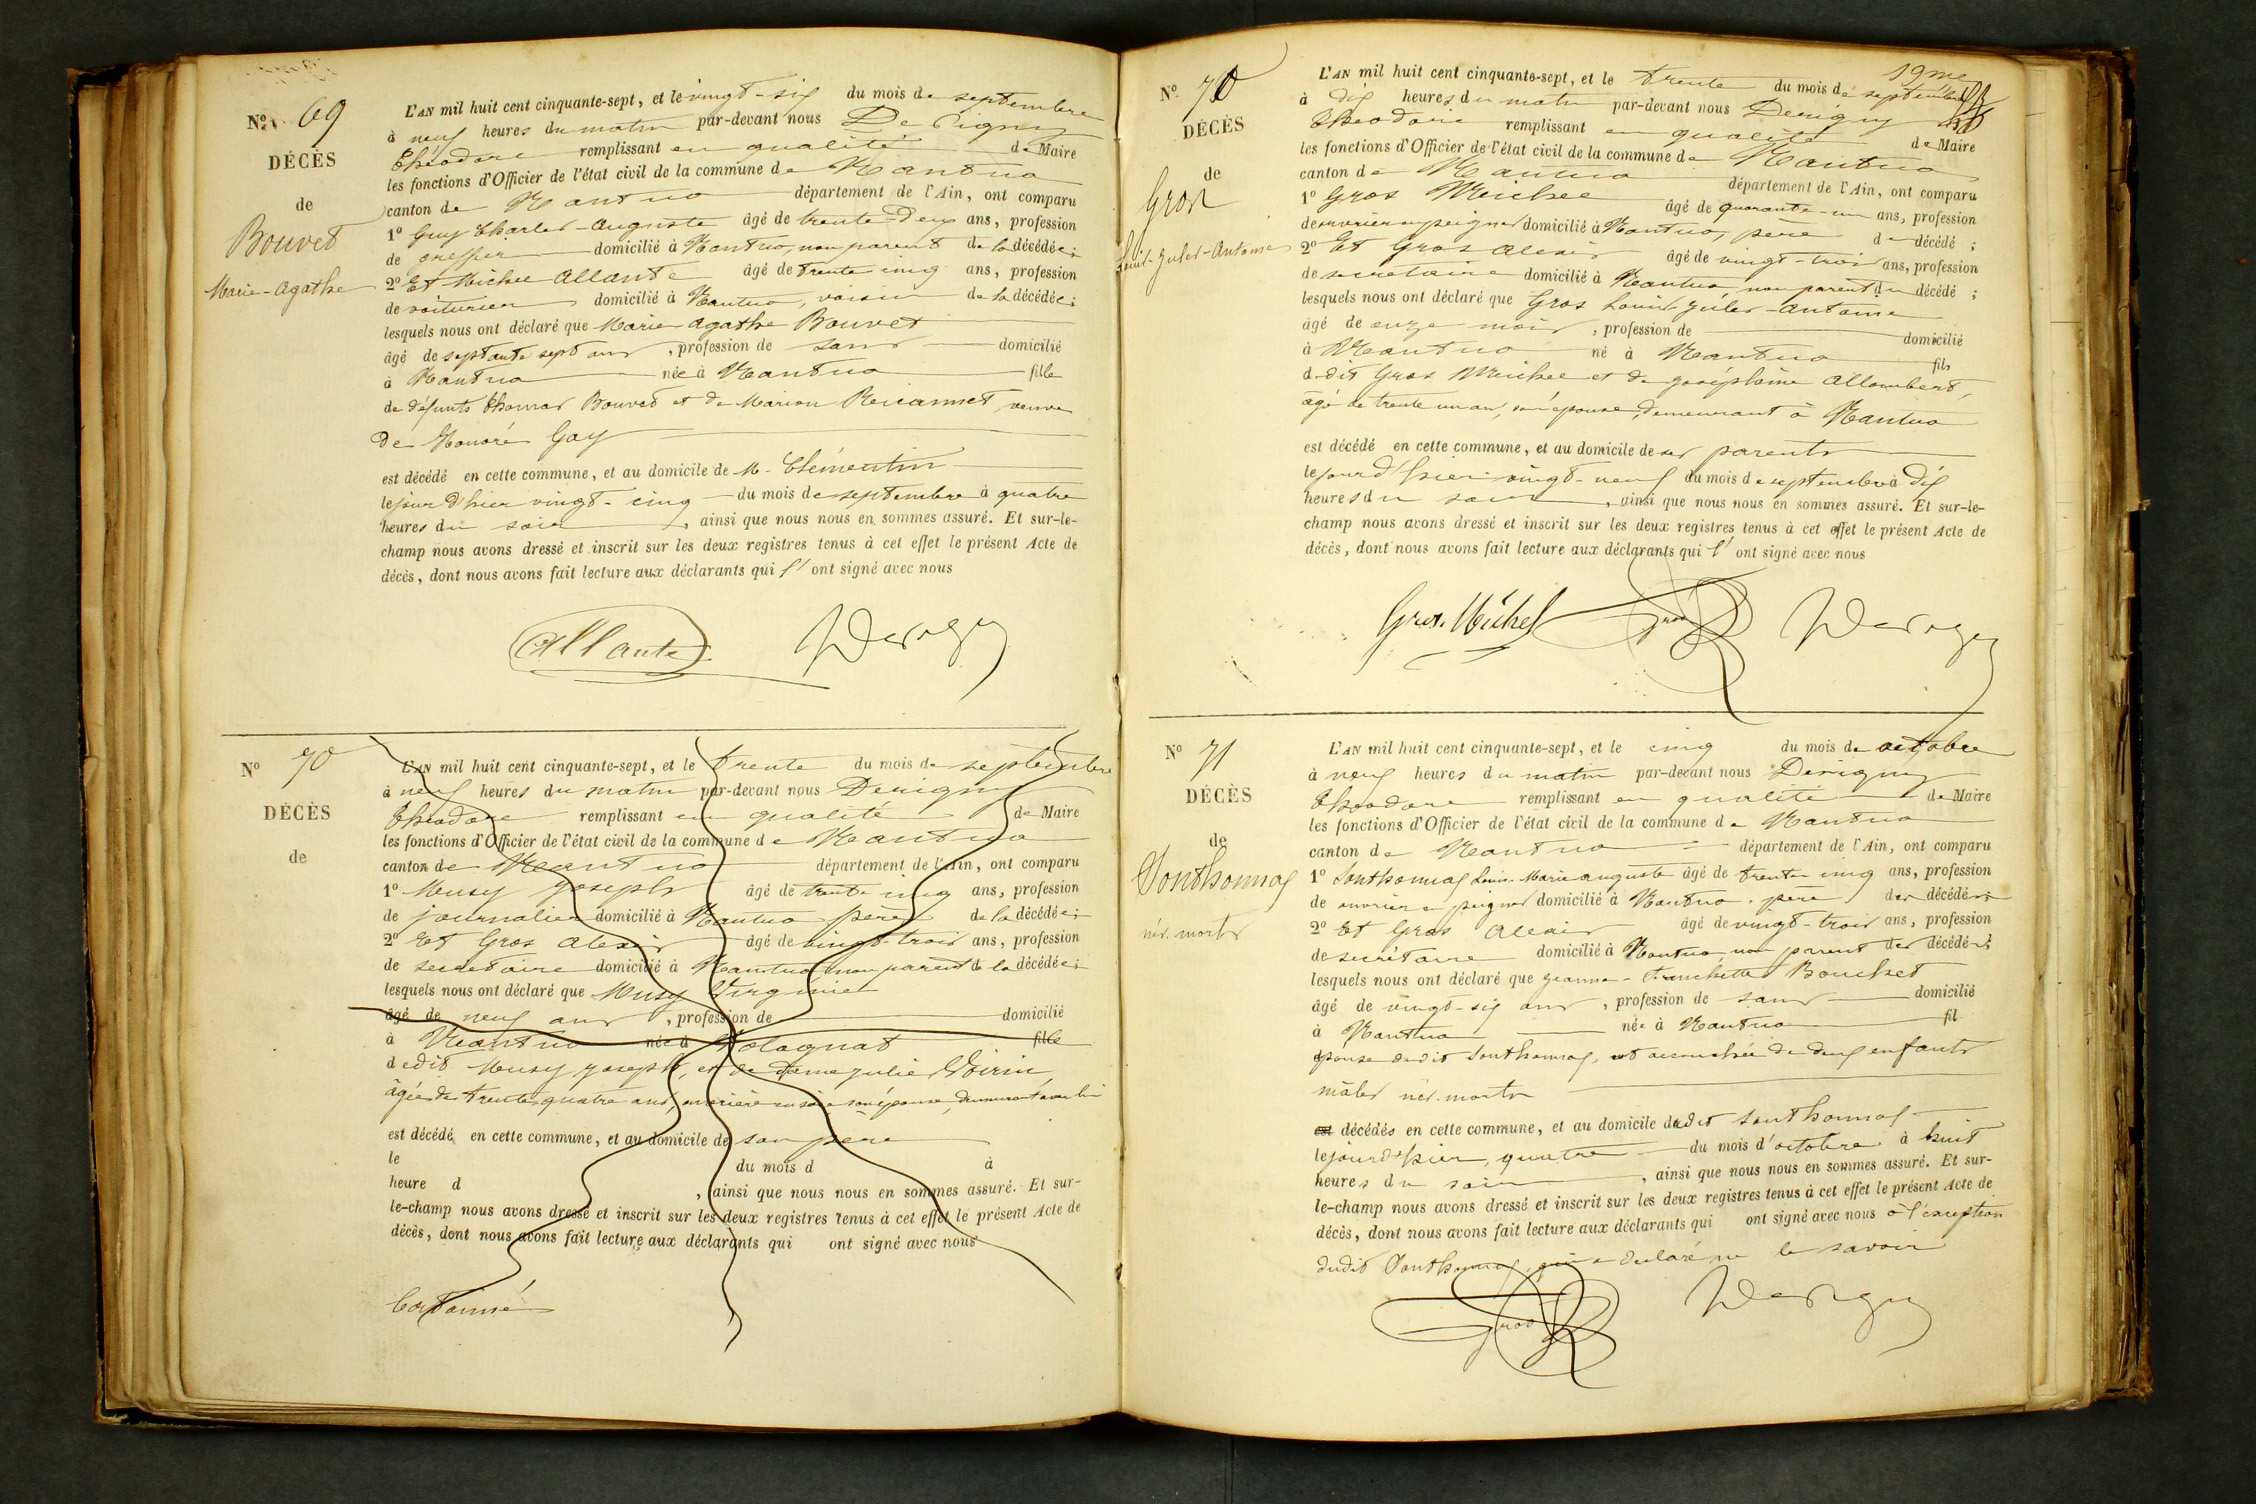 No 69
DÉCÈS
de
Bouvet
Marie-Agathe
L'AN mil huit cent cinquante-sept, et le vingt-six du mois de septembre
à neuf heures du matin par-devant nous Derigny
Théodore remplissant en qualité de Maire
les fonctions d'Officier de l'état civil de la commune de Nantua
canton de Nantua département de l'Ain, ont comparu
1º Guy Charles-Auguste âgé de trente-deux ans, profession
de greffier domicilié à Nantua, non parent de la décédée;
2º Et Michel Allante âgé de trente cinq ans, profession
de voiturier domicilié à Nantua, voisin de la décédée;
lesquels nous ont déclaré que Marie Agathe Bouvet
âgé de septante sept ans, profession de sans domicilié
à Nantua née à Nantua fille
de défunts Thomas Bouvet et de Marion veuve
de Honoré Gay
est décédé en cette commune, et au domicile de M. Clémentin
le jour d'hier vingt-cinq du mois de septembre à quatre
heures du soir, ainsi que nous nous en sommes assuré. Et sur-le-
champ nous avons dressé et inscrit sur les deux registres tenus à cet effet le présent Acte de
décès, dont nous avons fait lecture aux déclarants qui l' ont signé avec nous
Allante Derigny
No 70
DÉCÈS
de
L'AN mil huit cent cinquante-sept, et le trente du mois de septembre
à neuf heures du matin par-devant nous Derigny
Théodore remplissant en qualité de Maire
les fonctions d'Officier de l'état civil de la commune de Nantua
canton de Nantua département de l'Ain, ont comparu
1º Musy Joseph âgé de trente cinq ans, profession
de journalier domicilié à Nantua père de la décédée;
2º Et Gros Alexis âgé de vingt-trois ans, profession
de secrétaire domicilié à Nantua, non parent de la décédée;
lesquels nous ont déclaré que Musy Virginie
âgé de neuf ans, profession de domicilié
à Nantua née à Volognat fille
dudit Musy Joseph, et de dame Julie Voirin,
âgée de trente quatre ans, ouvrière en soie son épouse, demeurant avec lui
est décédé en cette commune, et au domicile de son père
le du mois d à
heure d , ainsi que nous nous en sommes assuré. Et sur-
le-champ nous avons dressé et inscrit sur les deux registres tenus à cet effet le présent Acte de
décès, dont nous avons fait lecture aux déclarants qui ont signé avec nous
No 70
DÉCÈS
de
Gros
Louis-Jules-Antoine
19me
L'AN mil huit cent cinquante-sept, et le trente du mois de septembre
à dix heures du matin par-devant nous Derigny
Théodore remplissant en qualité de Maire
les fonctions d'Officier de l'état civil de la commune de Nantua
canton de Nantua département de l'Ain, ont comparu
1º Gros Michel âgé de quarante-un ans, profession
de ouvrier en peignes domicilié à Nantua, père d décédé;
2º Et Gros Alexis âgé de vingt-trois ans, profession
de secrétaire domicilié à Nantua non parent du décédé;
lesquels nous ont déclaré que Gros Louis-Jules-Antoine
âgé de onze mois, profession de domicilié
à Nantua né à Nantua fils
dudit Gros Michel et de Joséphine Allombert,
âgé de trente un an, son épouse, demeurant à Nantua
est décédé en cette commune, et au domicile de ses parents
le jour d'hier vingt-neuf du mois de septembre à dix
heures du soir, ainsi que nous nous en sommes assuré. Et sur-le-
champ nous avons dressé et inscrit sur les deux registres tenus à cet effet le présent Acte de
décès, dont nous avons fait lecture aux déclarants qui l' ont signé avec nous
Gros. Michel Gros Derigny
No 71
DÉCÈS
de
Sonthonnax
nés-morts
L'AN mil huit cent cinquante-sept, et le cinq du mois de octobre
à neuf heures du matin par-devant nous Derigny
Théodore remplissant en qualité de Maire
les fonctions d'Officier de l'état civil de la commune de Nantua
canton de Nantua département de l'Ain, ont comparu
1º Sonthonnax Louis-Marie-Auguste âgé de trente cinq ans, profession
de ouvrier en peignes domicilié à Nantua. père des décédés;
2º Et Gros Alexis âgé de vingt-trois ans, profession
de secrétaire domicilié à Nantua non parent des décédés;
lesquels nous ont déclaré que Jeanne-Franchette Bouchet
âgé de vingt-six ans, profession de sans domicilié
à Nantua née à Nantua fil
épouse dudit Sonthonnax, est accouchée de deux enfants
mâles nés-morts
est décédés en cette commune, et au domicile dudit Sonthonnax
le jour d'hier, quatre du mois d'octobre à huit
heures du soir, ainsi que nous nous en sommes assuré. Et sur-
le-champ nous avons dressé et inscrit sur les deux registres tenus à cet effet le présent Acte de
décès, dont nous avons fait lecture aux déclarants qui ont signé avec nous à l'exception
dudit Sonthonnax, qui a déclaré ne le savoir
Gros Derigny